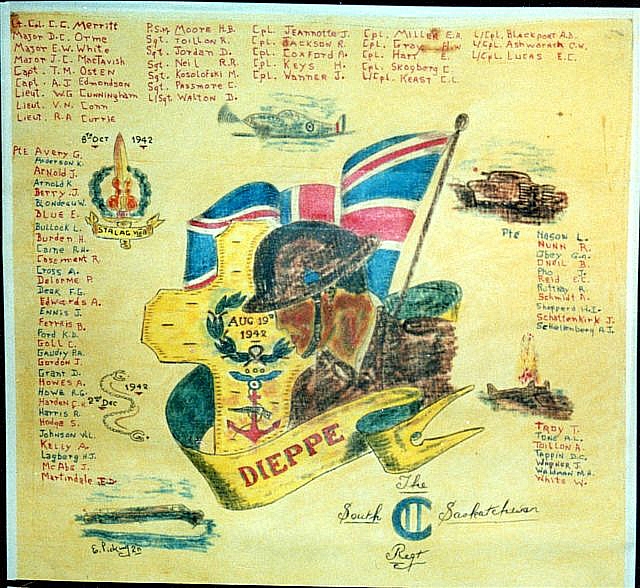 Lt. Col. C.C. Merritt
Major D.C. Orme
Major E.W. White
Major J.C. MacTavish
Capt. T.M. Osten
Capt. A.J Edmondson
Lieut. W.G Cunningham
Lieut. V.N. Conn
Lieut. R.A Currie
P.S.M Moore H.B.
Sgt. Toillon R.
Sgt. Jordan D.
Sgt. Neil R.R.
Sgt. Kosolofski M.
Sgt. Passmore C.
L/Sgt Walton D.
Cpl. Jeannotte J.
Cpl. Jackson R.
Cpl. Coxford A.
Cpl. Keys H.
Cpl. Wanner J.
Cpl. Miller E.R.
Cpl. Gray H.W
Cpl. Hart E.
Cpl. Skogberg C.
L/Cpl. Keast C.L.
L/Cpl. Blackport A.D.
L/Cpl. Ashworath C.W.
L/Cpl. Lucas E.C.
8th Oct 1942
STALAG VIIIB
Pte Avery G.
Anderson K.
Arnold J.
Arnold K
Berry J.
Blondeau W.
Blue E.
Bullock L.
Burden H.
Caine R.H.
Casement R.
Cross A.
Delorme P.
Deak F.G.
Edwards A.
Ennis J.
Ferris B.
Ford K.D.
Goll C.
Gaudry P.A.
Gordon J.
Grant D.
Howes A.
Howe R.G.
Harden C.W.
Harris R.
Hodge S.
Johnson W.L.
Kelly A.
Lagberg H.J.
McAbs J.
Martindale E.D
1942
2nd Dec
AUG 19th
1942
DIEPPE
Pte Nason L.
Nunn R.
Obey G.A.
O'Neil B.
Pho J.
Reid E.C.
Ruttray R.
Schmidt A.
Sheppard H.I.
Schattenkirk J.
Schellenberg A.J.
Troy T.
Tone A.L.
Toillon A.
Tappin D.C.
Wagner J.
Waldman M.H.
White W.
The
South III C Saskatchewan
Regt